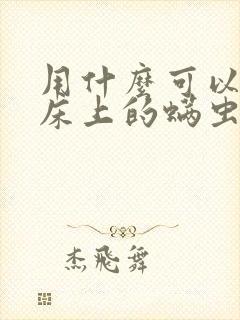 用什麼可以
床上的螨虫
杰飛舞